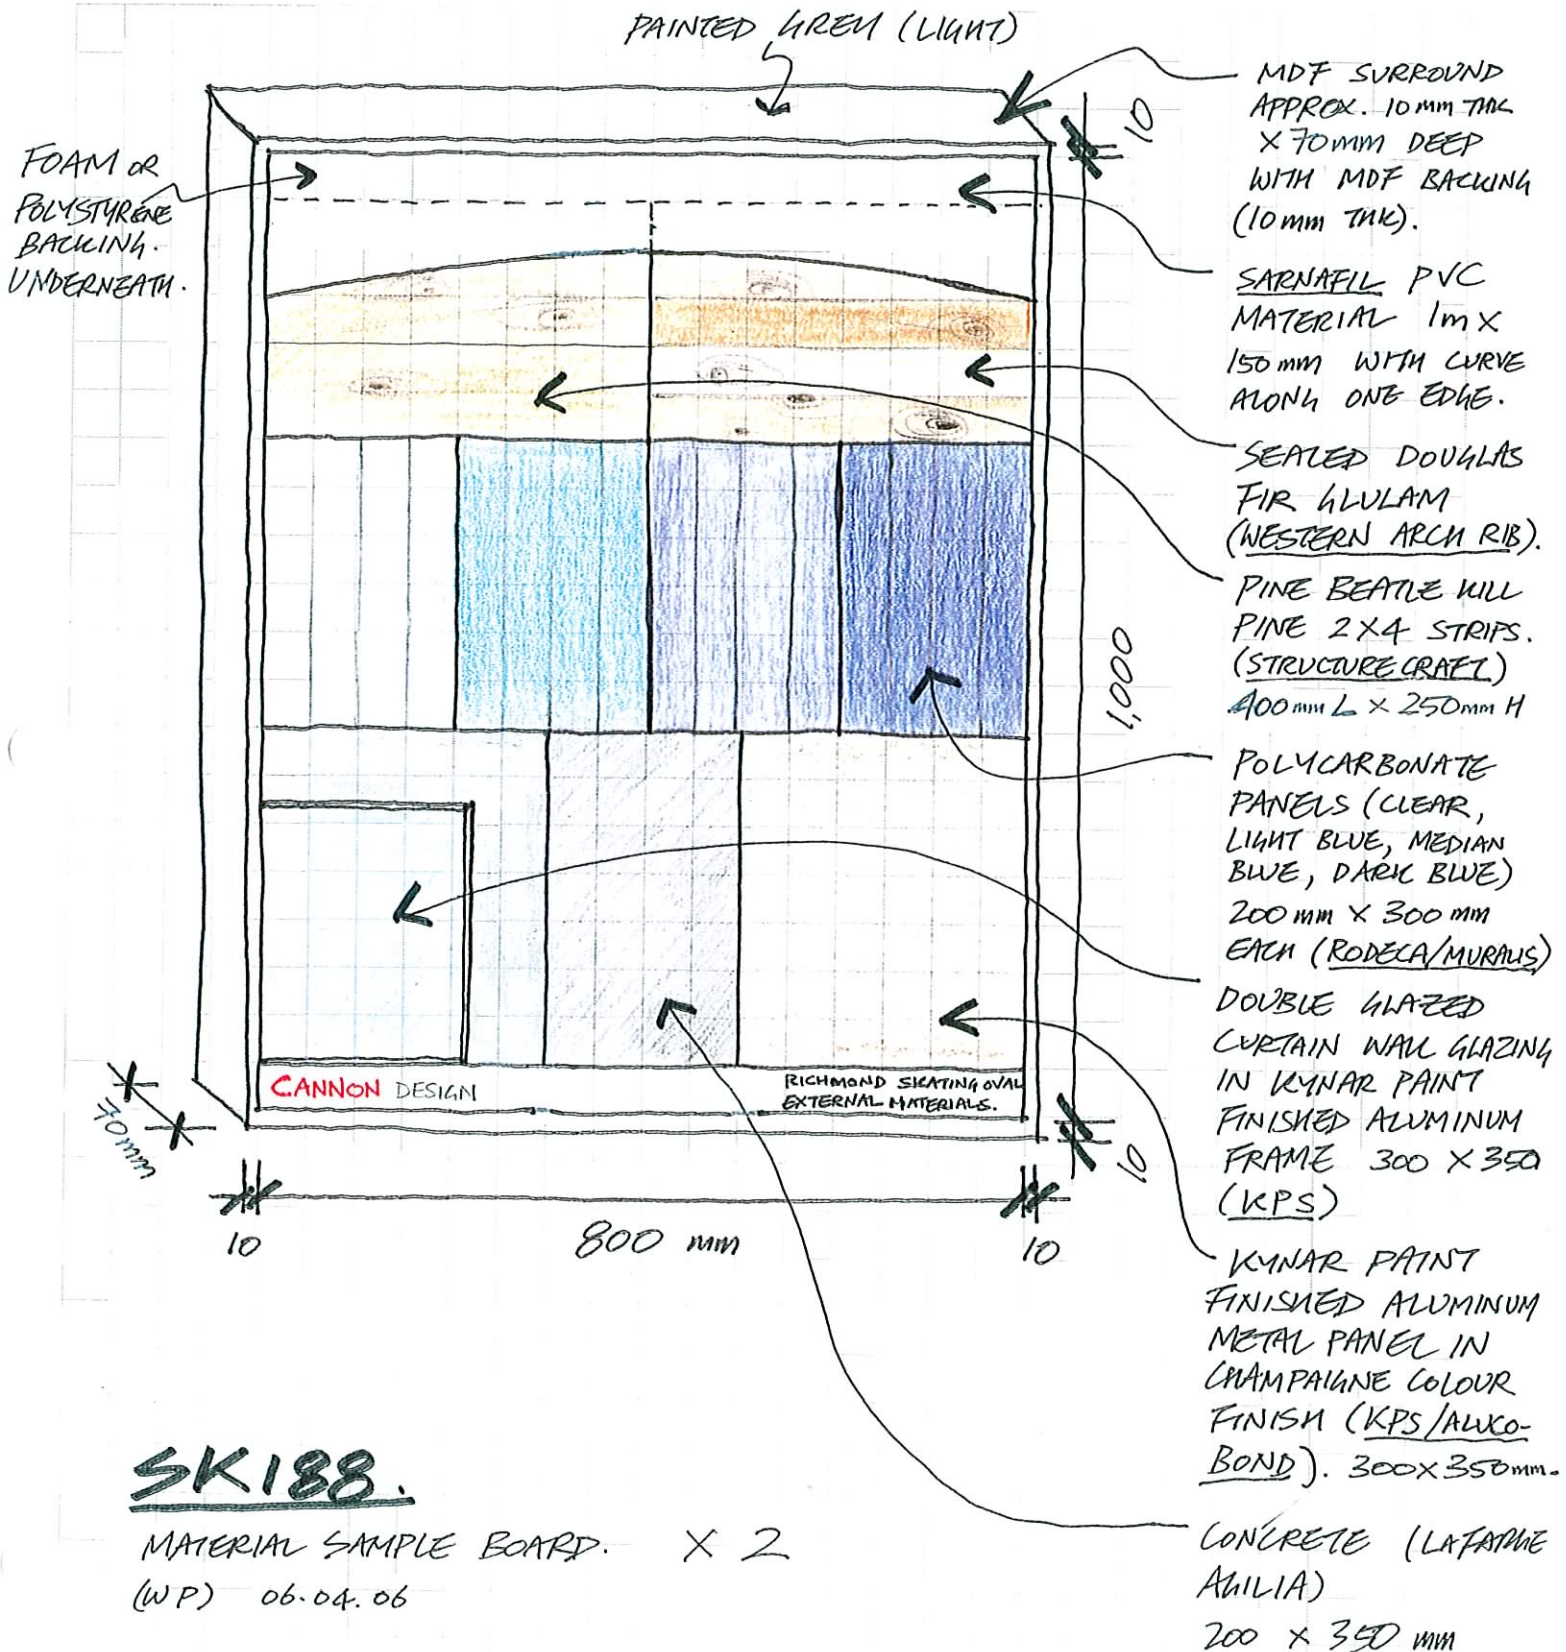 PAINTED GREY (LIGHT)
FOAM OR
POLYSTYRENE
BACKING.
UNDERNEATH.
MDF SURROUND
APPROX. 10mm THK
X 70mm DEEP
WITH MDF BACKING
(10mm THK).
SARNAFIL PVC
MATERIAL 1m X
150mm WITH CURVE
ALONG ONE EDGE.
SEALED DOUGLAS
FIR GLULAM
(WESTERN ARCH RIB).
PINE BEATLE KILL
PINE 2X4 STRIPS.
(STRUCTURE CRAFT)
400mm L X 250mm H
POLYCARBONATE
PANELS (CLEAR,
LIGHT BLUE, MEDIAN
BLUE, DARK BLUE)
200 mm X 300 mm
EACH (RODECA/MURALIS)
DOUBLE GLAZED
CURTAIN WALL GLAZING
IN KYNAR PAINT
FINISHED ALUMINUM
FRAME 300 X 350
(KPS)
KYNAR PAINT
FINISHED ALUMINUM
METAL PANEL IN
CHAMPAIGNE COLOUR
FINISH (KPS/ALUCO-
BOND). 300X350mm.
CONCRETE (LAFARGE
AGILIA)
200 X 350 mm
10
1,000
10
CANNON DESIGN
RICHMOND SKATING OVAL
EXTERNAL MATERIALS.
70mm
10
800 mm
10
SK188.
MATERIAL SAMPLE BOARD. X 2
(WP) 06.04.06